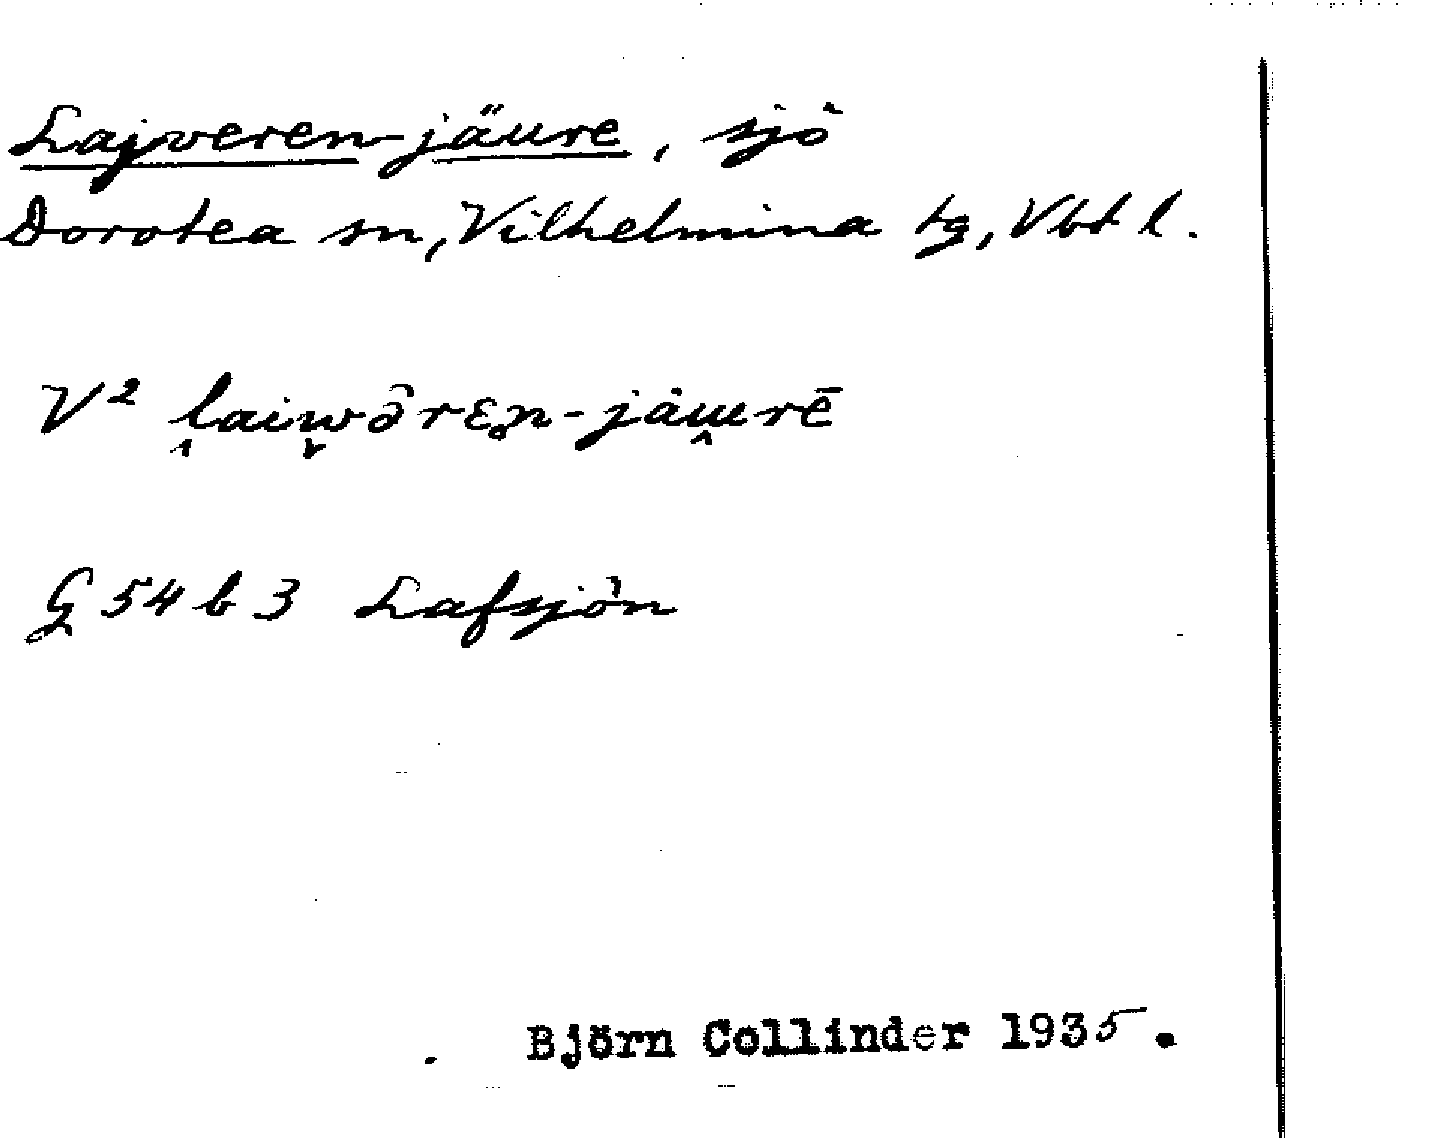 Lajveren-jäure, sjö
Dorotea sn, Vilhelmina tg, Vbt l.
V²
G 54 b 3 Lafsjön
Björn Collinder 1935.